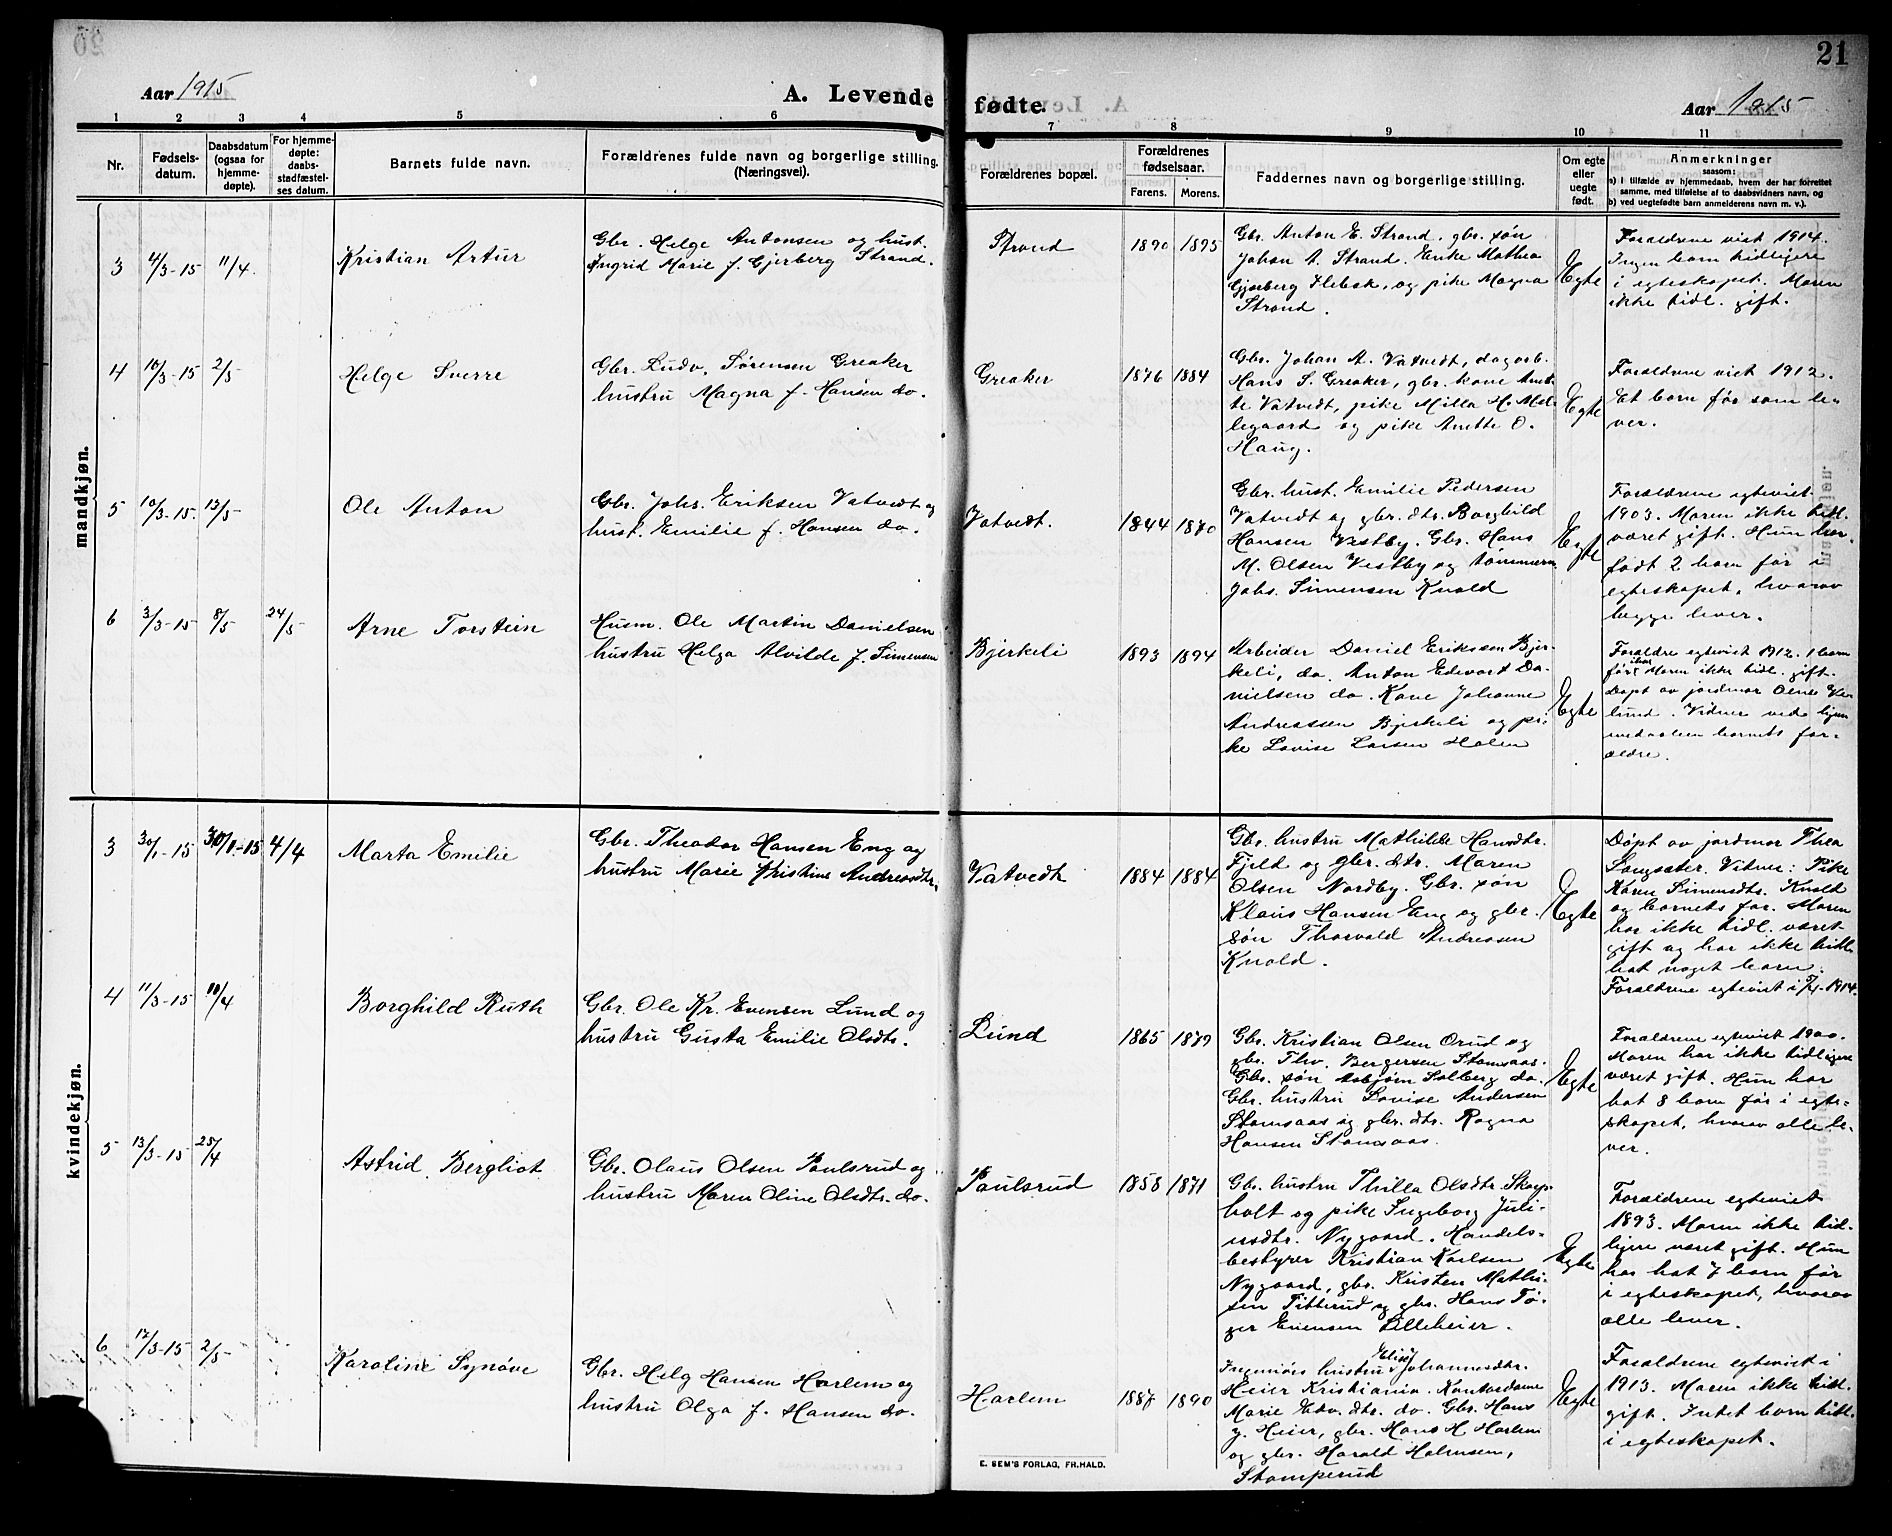 21
Aar 1915
A. Levende fødte.
Aar 1915
1 2 3 4 5 6 7 8 9 10 11
Nr.
Fødsels-
datum.
Daabsdatum
(ogsaa for
hjemme-
døpte).
For hjemme-
døpte:
daabs-
stadfæstel-
ses datum.
Barnets fulde navn.
Forældrenes fulde navn og borgerlige stilling.
(Næringsvei).
Forældrenes bopæl.
Forældrenes
fødselsaar.
Farens. Morens.
Faddernes navn og borgerlige stilling.
Om egte
eller
uegte
født.
Anmerkninger
saasom:
a) i tilfælde av hjemmedaab, hvem der har forrettet
samme, med tilføielse af to daabsvidners navn, og
b) ved uegtefødte barn anmelderens navn m. v.).
mandkjøn.
3 4/3-15 11/4.
Kristian Artur
Gbr. Helge Antonsen og hust.
Ingrid Marie f. Gjerberg Strand.
Strand
1890 1895
Gbr. Anton E. Strand, gbr. søn
Johan A. Strand. Enke Mathea
Gjerberg Flebek, og pike Magna
Strand.
Egte
Forældrene viet 1914.
Ingen barn tidligere
i egteskapet. Moren
ikke tidl. gift.
4 10/3-15 2/5
Helge Sverre
Gbr. Ludv. Sørensen Greaker
hustru Magna f. Hansen do.
Greaker
1876 1884
Gbr. Johan A. Vatvedt, dagarb.
Hans S. Greaker, gbr. kone Anet-
te Vatvedt, pike Milla H. Møl-
legaard og pike Anette O.
Haug.
Egte
Forældrene viet 1912.
Et barn før som le-
ver.
5 10/3-15. 13/5
Ole Anton
Gbr. Johs. Eriksen Vatvedt og
hust. Emilie f. Hansen do.
Vatvedt.
1844 1870
Gbr. hust. Emilie Pedersen
Vatvedt og gbr. dtr. Borghild
Hansen Vestby. Gbr. Hans
M. Olsen Vestby og tømmerm.
Johs. Simensen Knold
Egte
Forældrene egteviet
1903. Moren ikke tidl.
været gift. Hun har
født 2 barn før i
egteskapet, hvorav
begge lever.
6 3/3-15 8/5 24/5
Arne Torstein
Husm. Ole Martin Danielsen
hustru Helga Alvilde f. Simensen
Bjerkeli
1893 1894
Arbeider Daniel Eriksen Bjer-
keli, do. Anton Edvart Da-
nielsen do. Kone Johanne
Andreassen Bjerkeli og pi-
ke Lovise Larsen Holen
Egte
Forældre egteviet 1912. 1 barn
før. Moren ikke tidl. gift.
Døpt av jordmor
lund. Vidner ved hjem-
medaaben barnets for-
ældre.
kvindekjøn.
3 30/1-15 30/1-15 4/4
Marta Emilie
Gbr. Theodor Hansen Eng og
hustru Marie Kristine Andreasdtr.
Vatvedt
1884 1884
Gbr. hustru Mathilde Hansdtr.
Fjeld og gbr. dtr. Maren
Olsen Nordby. Gbr. søn
Klaus Hansen Eng og gbr.
søn Thorvald Andreasen
Knold.
Egte
Døpt av jordmor Thea
Langsæter. Vitner: Pike
Karen Simensdtr. Knold
og barnets far. Moren
har ikke tidl. været
gift og har ikke tidl.
hat noget barn.
Forældrene egteviet i 1914.
4 11/3-15 18/4
Borghild Ruth
Gbr. Ole Kr. Evensen Lund og
hustru Gusta Emilie Olsdtr.
Lund
1865 1879
Gbr. Kristian Olsen Orud og
gbr. Thv. Bergersen Stomsaas.
Gbr. søn Asbjørn Solberg do.
Gbr. hustru Lovise Andersen
Stomsaas og gbr. dtr. Ragna
Hansen Stomsaas.
Egte
Forældrene egteviet 1900.
Moren har ikke tidligere
været gift. Hun har
hat 8 barn før i egte-
skapet, hvorav alle le-
ver.
5 13/3-15 25/4
Astrid Bergliot
Gbr. Olaus Olsen Paulsrud og
hustru Maren Oline Olsdtr. do.
Paulsrud
1858 1871
Gbr. hustru Thilla Olsdtr. Skog-
holt og pike Ingeborg Juli-
usdtr. Nygaard. Handels-
bestyrer Kristian Karlsen
Nygaard, gbr. Kristen Mathi-
sen Titterud og gbr. Hans Tø-
ger Evensen Lilleheier.
Egte
Forældrene egteviet
1893. Moren ikke tid-
ligere været gift. Hun
har hat 7 barn før
i egteskapet, hvorav
alle lever.
6 17/3-15 2/5
Karoline Synøve
Gbr. Helg Hansen Harlem og
hustru Olga f. Hansen do.
Harlem
1887 1890
Ingeniørs hustru Elise Johannesdtr.
Heier Kristiania. Kontordame
Marie Edv. dtr. do. Gbr. Hans
J. Heier, gbr. Hans H Harlem
og gbr. Harald Halvorsen,
Stomperud
Egte
Forældrene egteviet i
1913. Moren ikke tidl.
gift. Intet barn tidl.
i egteskapet.
E. SEM'S FORLAG, FR.HALD.